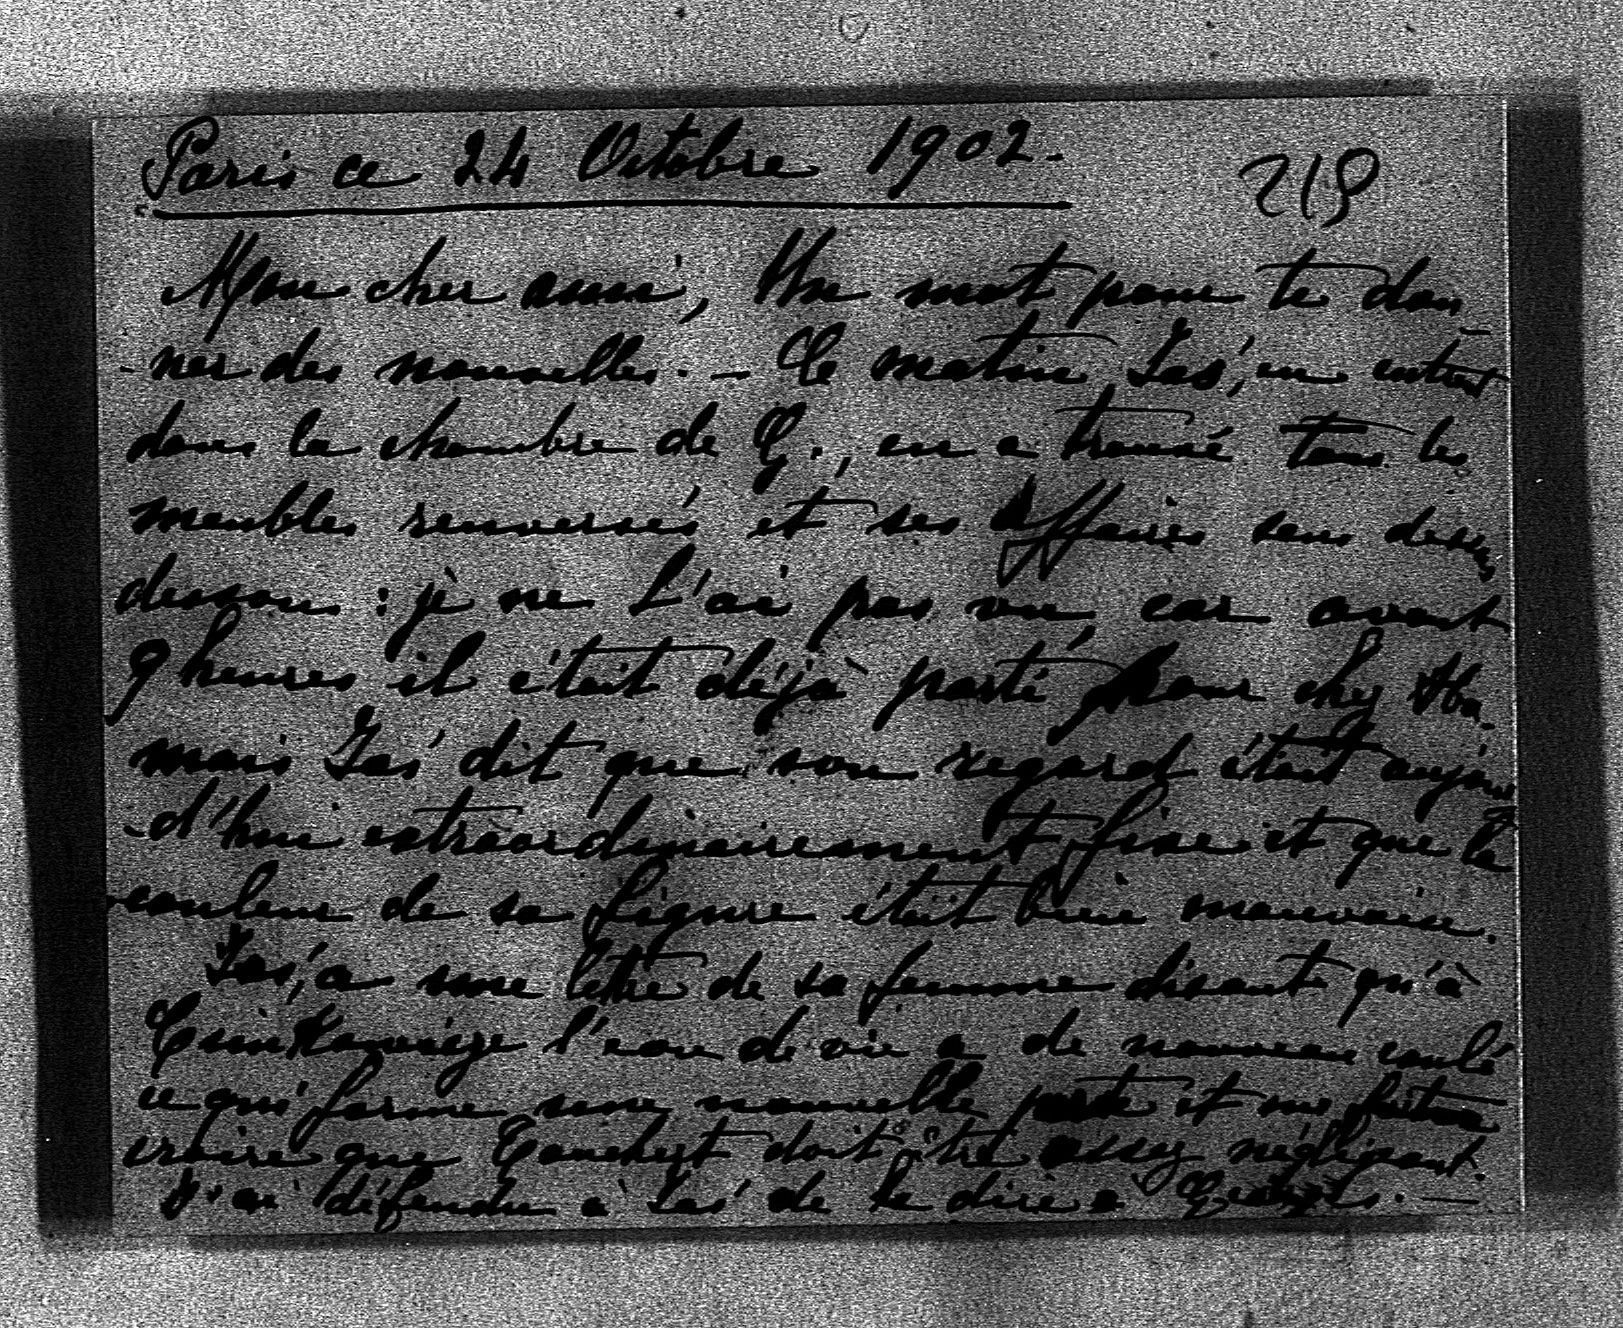 Paris ce 24 Octobre 1902.
219
Mon cher ami, Un mot pour te don
-ner des nouvelles. - Ce matin Jas', en entrant
dans la chambre de G., en a trouvé tous les
meubles renversés et ses affaires sens dessus
dessous : je ne l'ai pas vu car avant
9 heures il était déjà parti pour chez
mais Jas' dit que son regard était aujour
-d'hui extraordinairement fixe et que la
couleur de sa figure était bien mauvaise.
Jas', a une lettre de sa femme disant qu'à
l'eau de vie a de nouveau coulé
ce qui forme une nouvelle perte et me fait
croire que doit être assez négligent.
J'ai défendu à Jas' de le dire à Georges. —